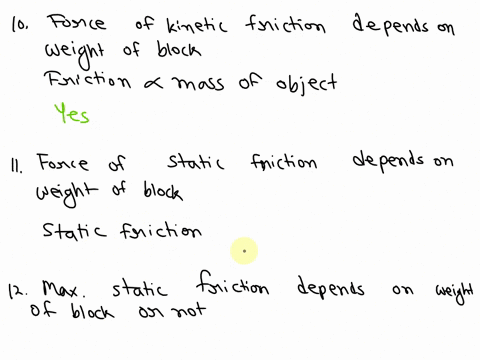 10. Force of kinetic friction depends on
weight of block
Friction ∝ mass of object
Yes
11. Force of static friction depends on
weight of block
Static friction
12. Max. static friction depends on weight
of block or not